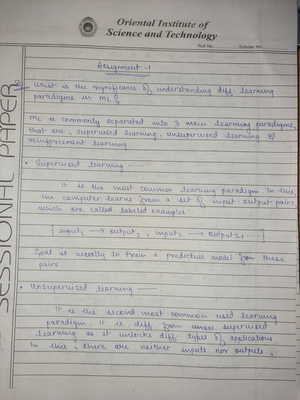 Oriental Institute of
Science and Technology
Roll No.
Scholar No.
SESSIONAL PAPER
Assignment - 1
What is the significance of understanding diff learning
paradigms in ML?
ML is commonly separated into 3 main learning paradigms,
that are, supervised learning, unsupervised learning &
reinforcement learning
• Supervised learning —
It is the most common learning paradigm. In this
the computer learns from a set of input-output pairs,
which are called labeled examples
{ input₁ → output₁, input₂ → output₂...
Goal is usually to train a predictive model from these
pairs
• Unsupervised learning —
It is the second most common used learning
paradigm. It is diff from supervised
learning as it unlocks diff types of applications
In this, there are neither inputs nor outputs,